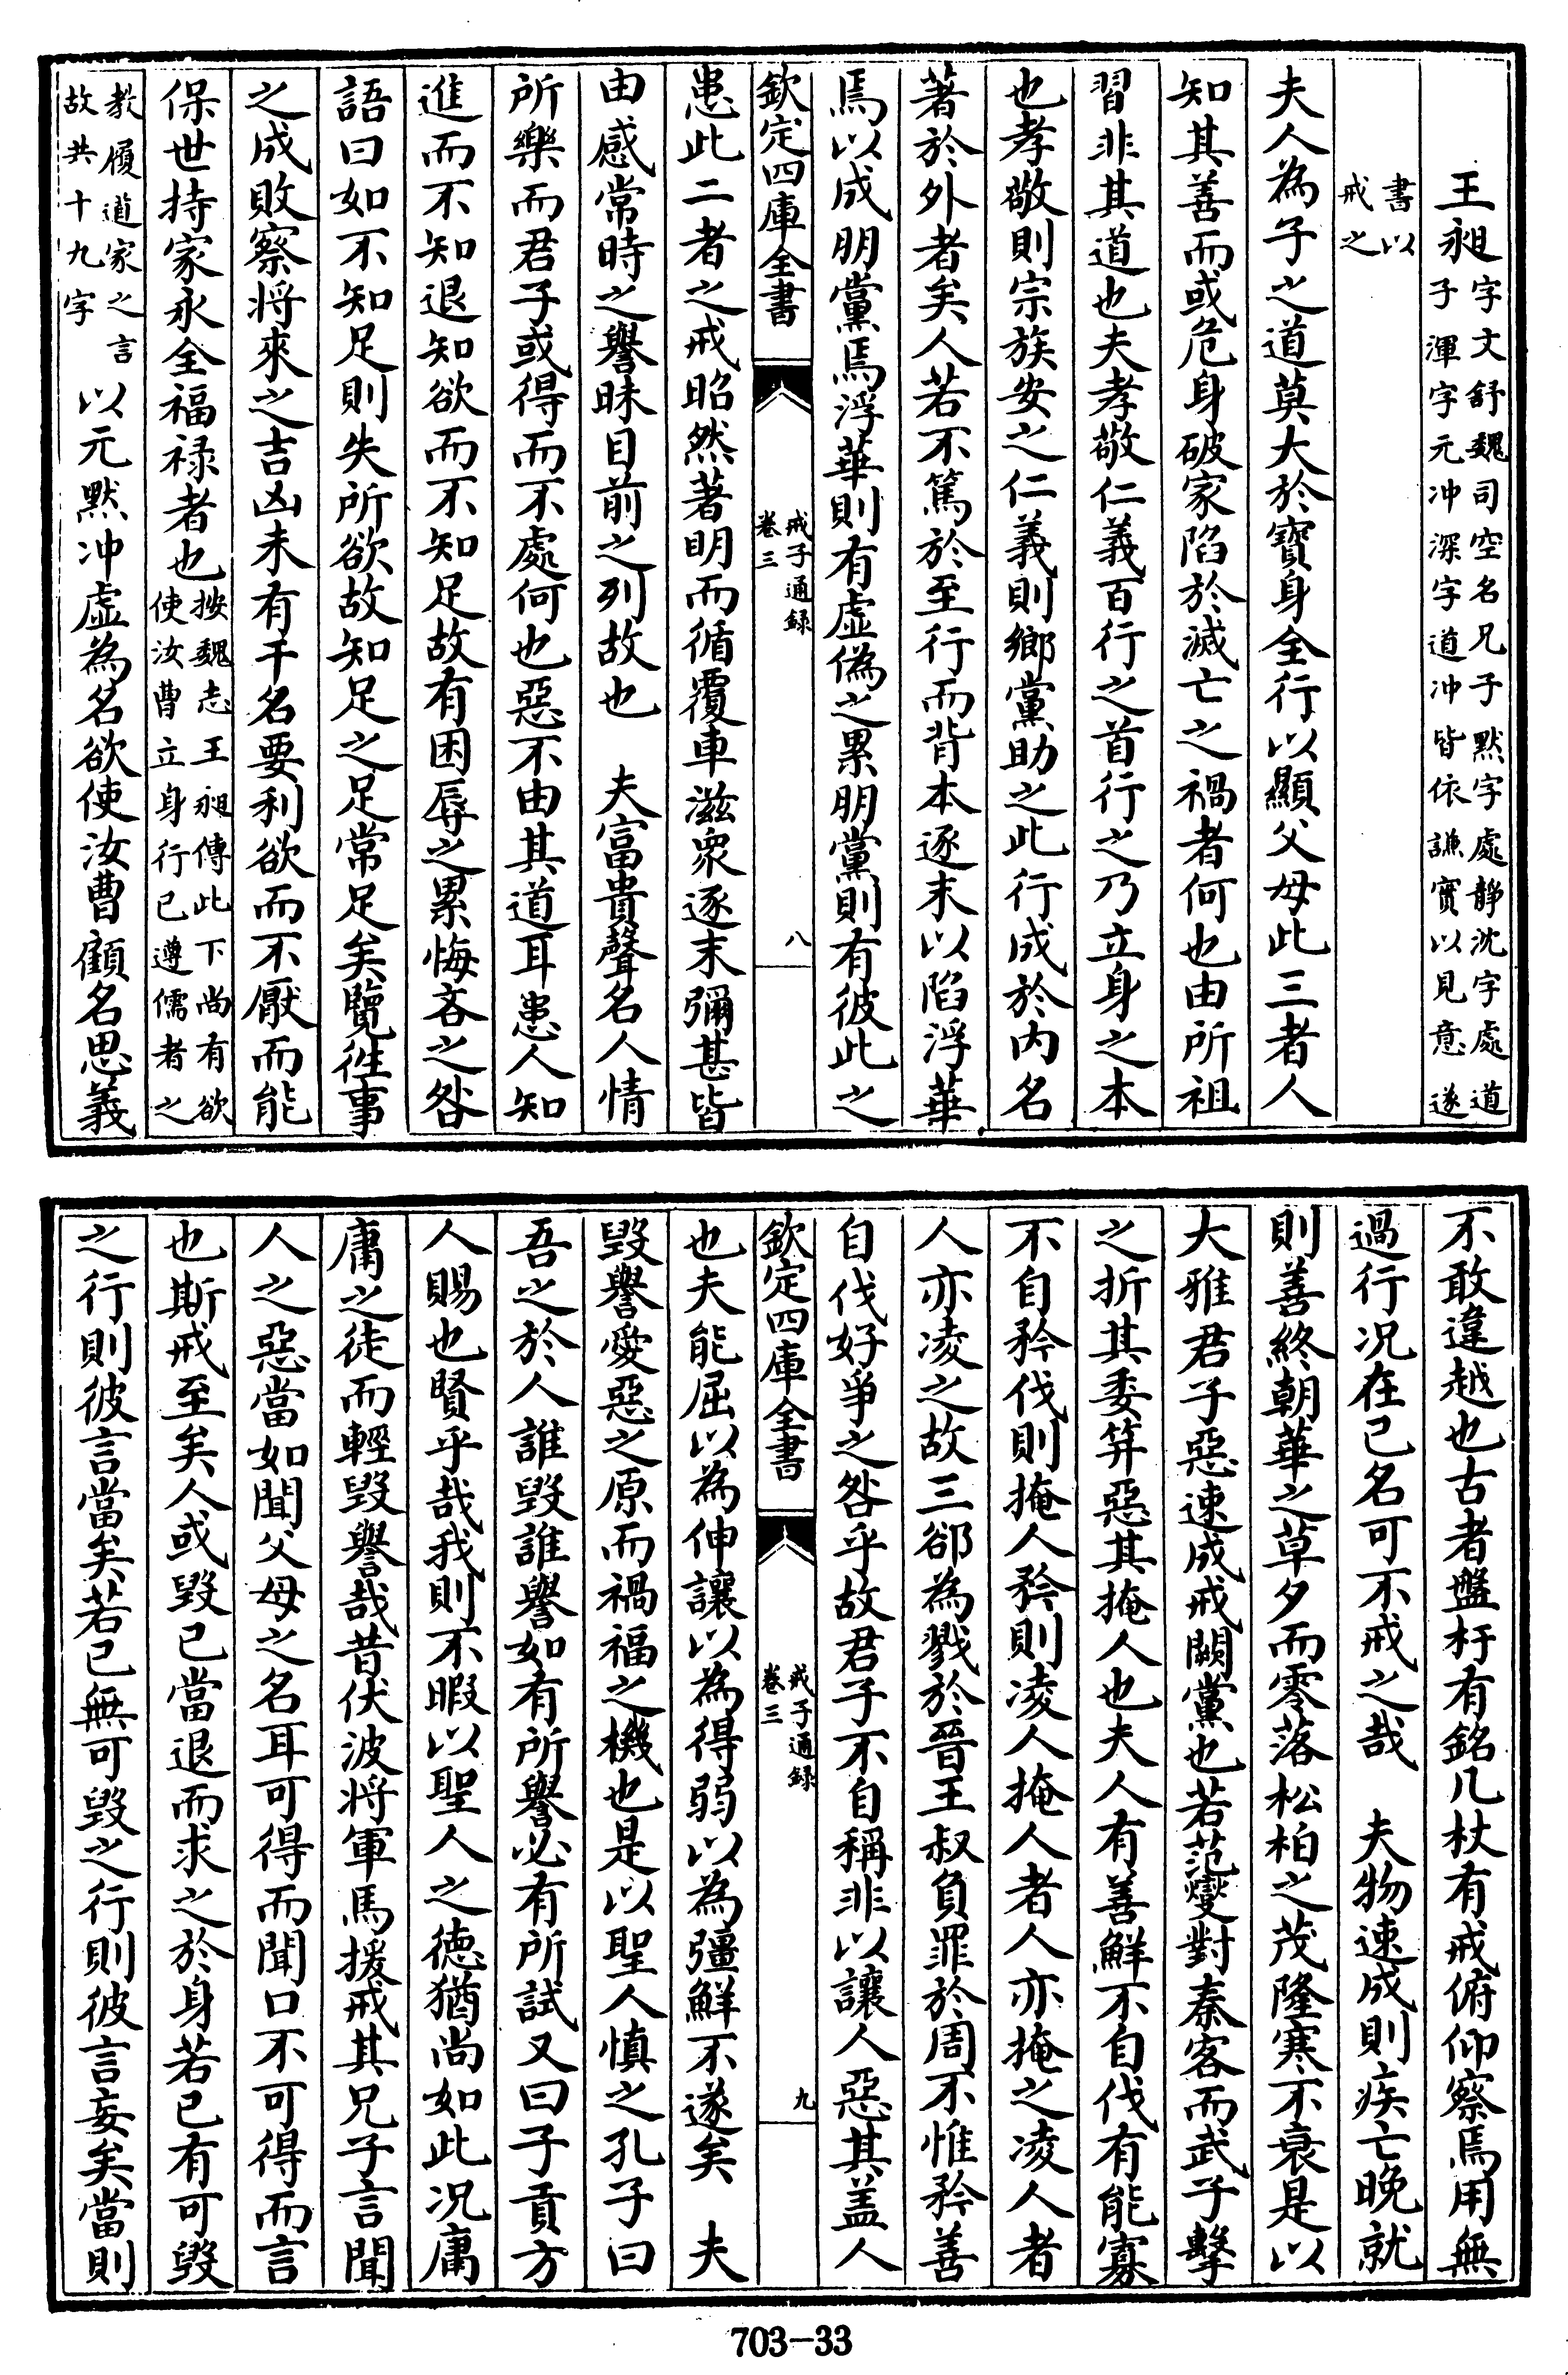 王昶字文舒魏司空名兄子黙字處静沈字處道
子渾字元冲深字道冲皆依謙實以見意遂
書以
戒之
夫人為子之道莫大於寳身全行以顯父母此三者人
知其善而或危身破家陷於滅亡之禍者何也由所祖
習非其道也夫孝敬仁義百行之首行之乃立身之本
也孝敬則宗族安之仁義則鄉黨助之此行成於内名
著於外者矣人若不篤於至行而背本逐末以陷浮華
焉以成朋黨焉浮華則有虚偽之累朋黨則有彼此之
欽定四庫全書
戒子通録
卷三
八
患此二者之戒昭然著明而循覆車滋衆逐末彌甚皆
由感常時之譽昧目前之列故也　夫富貴聲名人情
所樂而君子或得而不處何也惡不由其道耳患人知
進而不知退知欲而不知足故有困辱之累悔吝之咎
語曰如不知足則失所欲故知足之足常足矣覽徃事
之成敗察將來之吉凶未有干名要利欲而不厭而能
保世持家永全福禄者也按魏志王昶傳此下尚有欲
使汝曹立身行已遵儒者之
教履道家之言
故共十九字以元默冲虚為名欲使汝曹顧名思義
不敢違越也古者盤杅有銘几杖有戒俯仰察焉用無
過行况在已名可不戒之哉　夫物速成則疾亡晚就
則善終朝華之草夕而零落松柏之茂隆寒不衰是以
大雅君子惡速成戒闕黨也若范燮對秦客而武子擊
之折其委笄惡其掩人也夫人有善鮮不自伐有能寡
不自矜伐則掩人矜則凌人掩人者人亦掩之凌人者
人亦凌之故三郤為戮於晉王叔負罪於周不惟矜善
自伐好爭之咎乎故君子不自稱非以讓人惡其盖人
欽定四庫全書
戒子通録
卷三
九
也夫能屈以為伸讓以為得弱以為彊鮮不遂矣　夫
毀譽愛惡之原而禍福之機也是以聖人慎之孔子曰
吾之於人誰毀誰譽如有所譽必有所試又曰子貢方
人賜也賢乎哉我則不暇以聖人之德猶尚如此况庸
庸之徒而輕毀譽哉昔伏波将軍馬援戒其兄子言聞
人之惡當如聞父母之名耳可得而聞口不可得而言
也斯戒至矣人或毀已當退而求之於身若已有可毀
之行則彼言當矣若已無可毀之行則彼言妄矣當則
703-33